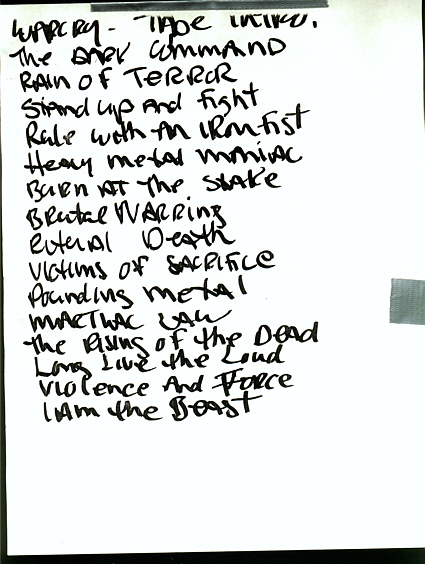 WARCRY - TAPE INTRO.
The DARK COMMAND
RAIN OF TERROR
Stand up And Fight
Rule with AN IRON Fist
Heavy metal MANIAC
Burn At The Stake
Brutal WARRING
Ritual Death
VICTIMS OF SACRIFICE
Pounding metal
MARTIAL LAW
The Rising of the Dead
Long Live the Loud
Violence And Force
I Am the Beast